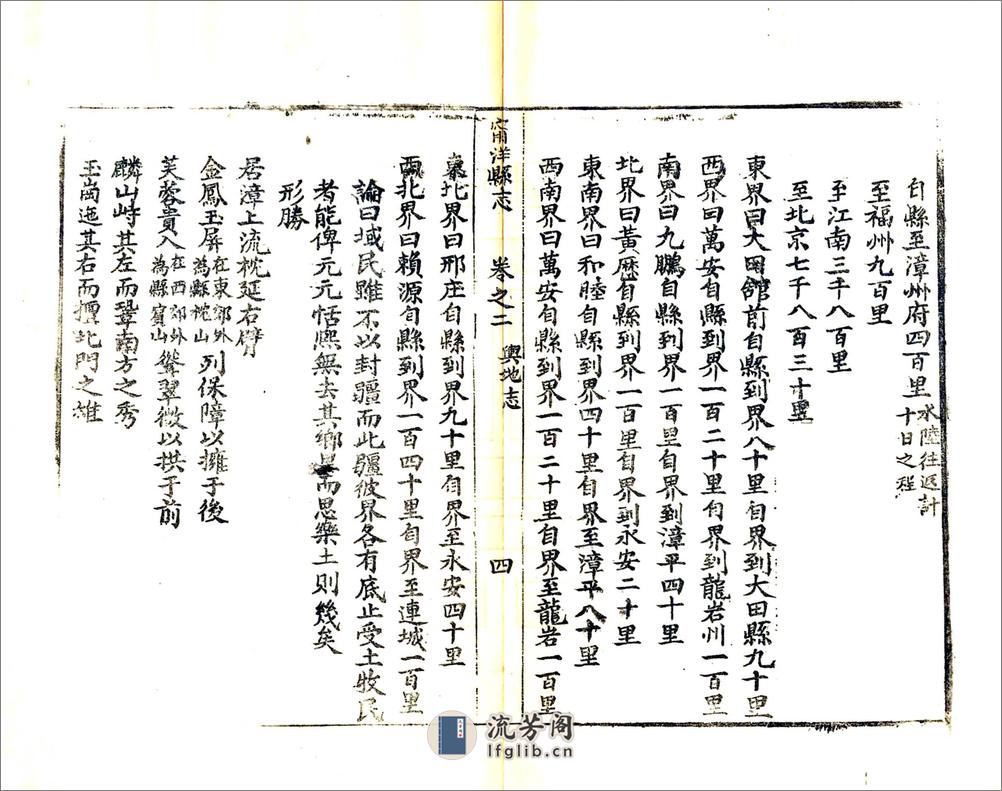 自縣至漳州府四百里水陸往返計十日之程
至福州九百里
至江南三千八百里
至北京七千八百三十里
東界曰大田舘前自縣到界八十里自界到大田縣九十里
西界曰萬安自縣到界一百二十里自界到龍岩州一百里
南界曰九鵬自縣到界一百里自界到漳平四十里
北界曰黃歷自縣到界一百里自界到永安二十里
東南界曰和睦自縣到界四十里自界至漳平八十里
西南界曰萬安自縣到界一百二十里自界至龍岩一百里
甯洋縣志 卷之二 輿地志 四
東北界曰邢庄自縣到界九十里自界至永安四十里
西北界曰賴源自縣到界一百四十里自界至連城一百里
論曰域民雖不以封疆而此疆彼界各有底止受土牧民
者能俾元元恬熙無去其鄉而思樂土則幾矣
形勝
居漳上流枕延右臂
金鳳玉屏在東郊外為縣枕山列保障以擁于後
芙蓉貴人在西郊外為縣賓山聳翠微以拱于前
麟山峙其左而鞏南方之秀
玉崗迤其右而擅北門之雄
流芳阁
lfglib.cn